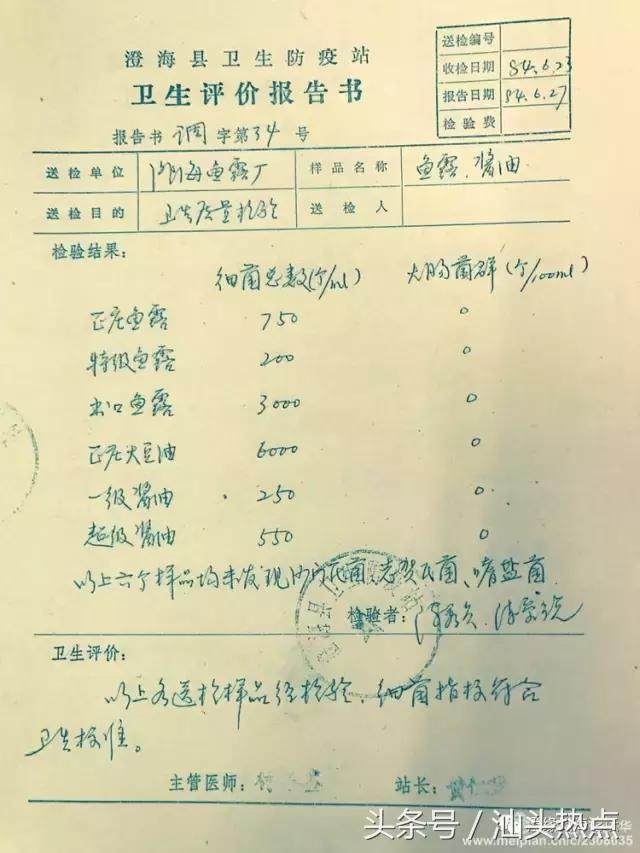 澄海县卫生防疫站
卫生评价报告书
送检编号
收检日期 84.6.23
报告日期 84.6.27
检验费
报告书 调 字第 34 号
送检单位 海鱼露厂 样品名称 鱼露、酱油
送检目的 卫生质量检验 送检人
检验结果:
细菌总数(个/ml) 大肠菌群(个/100ml)
正庄鱼露 750 0
特级鱼露 200 0
出口鱼露 3000 0
正庄大豆油 6000 0
一级酱油 250 0
超级酱油 550 0
以上六个样品均未发现沙门氏菌、志贺氏菌、嗜盐菌
检验者:
卫生评价:
以上各送检样品经检验,细菌指标符合
卫生标准。
主管医师: 站长:
头条号/汕头热点
www.meipian.cn/c/2366035